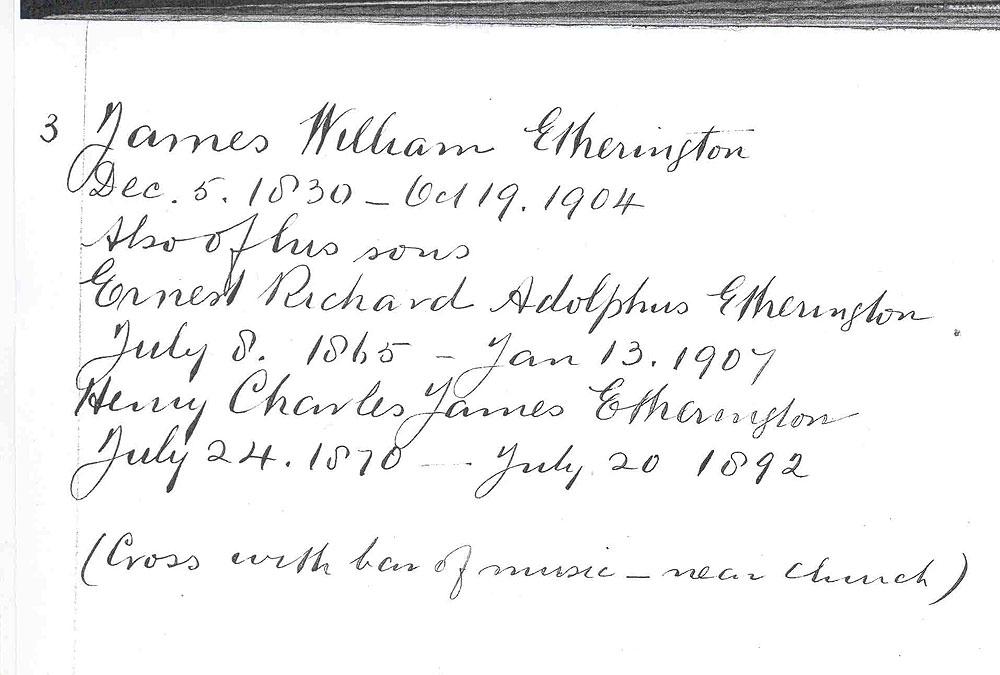 3 James William Etherington
Dec. 5. 1830 – Oct 19. 1904
Also of his sons
Ernest Richard Adolphus Etherington
July 8. 1865 – Jan 13. 1907
Henry Charles James Etherington
July 24. 1870 — July 20 1892
(Cross with bar of music – near church)